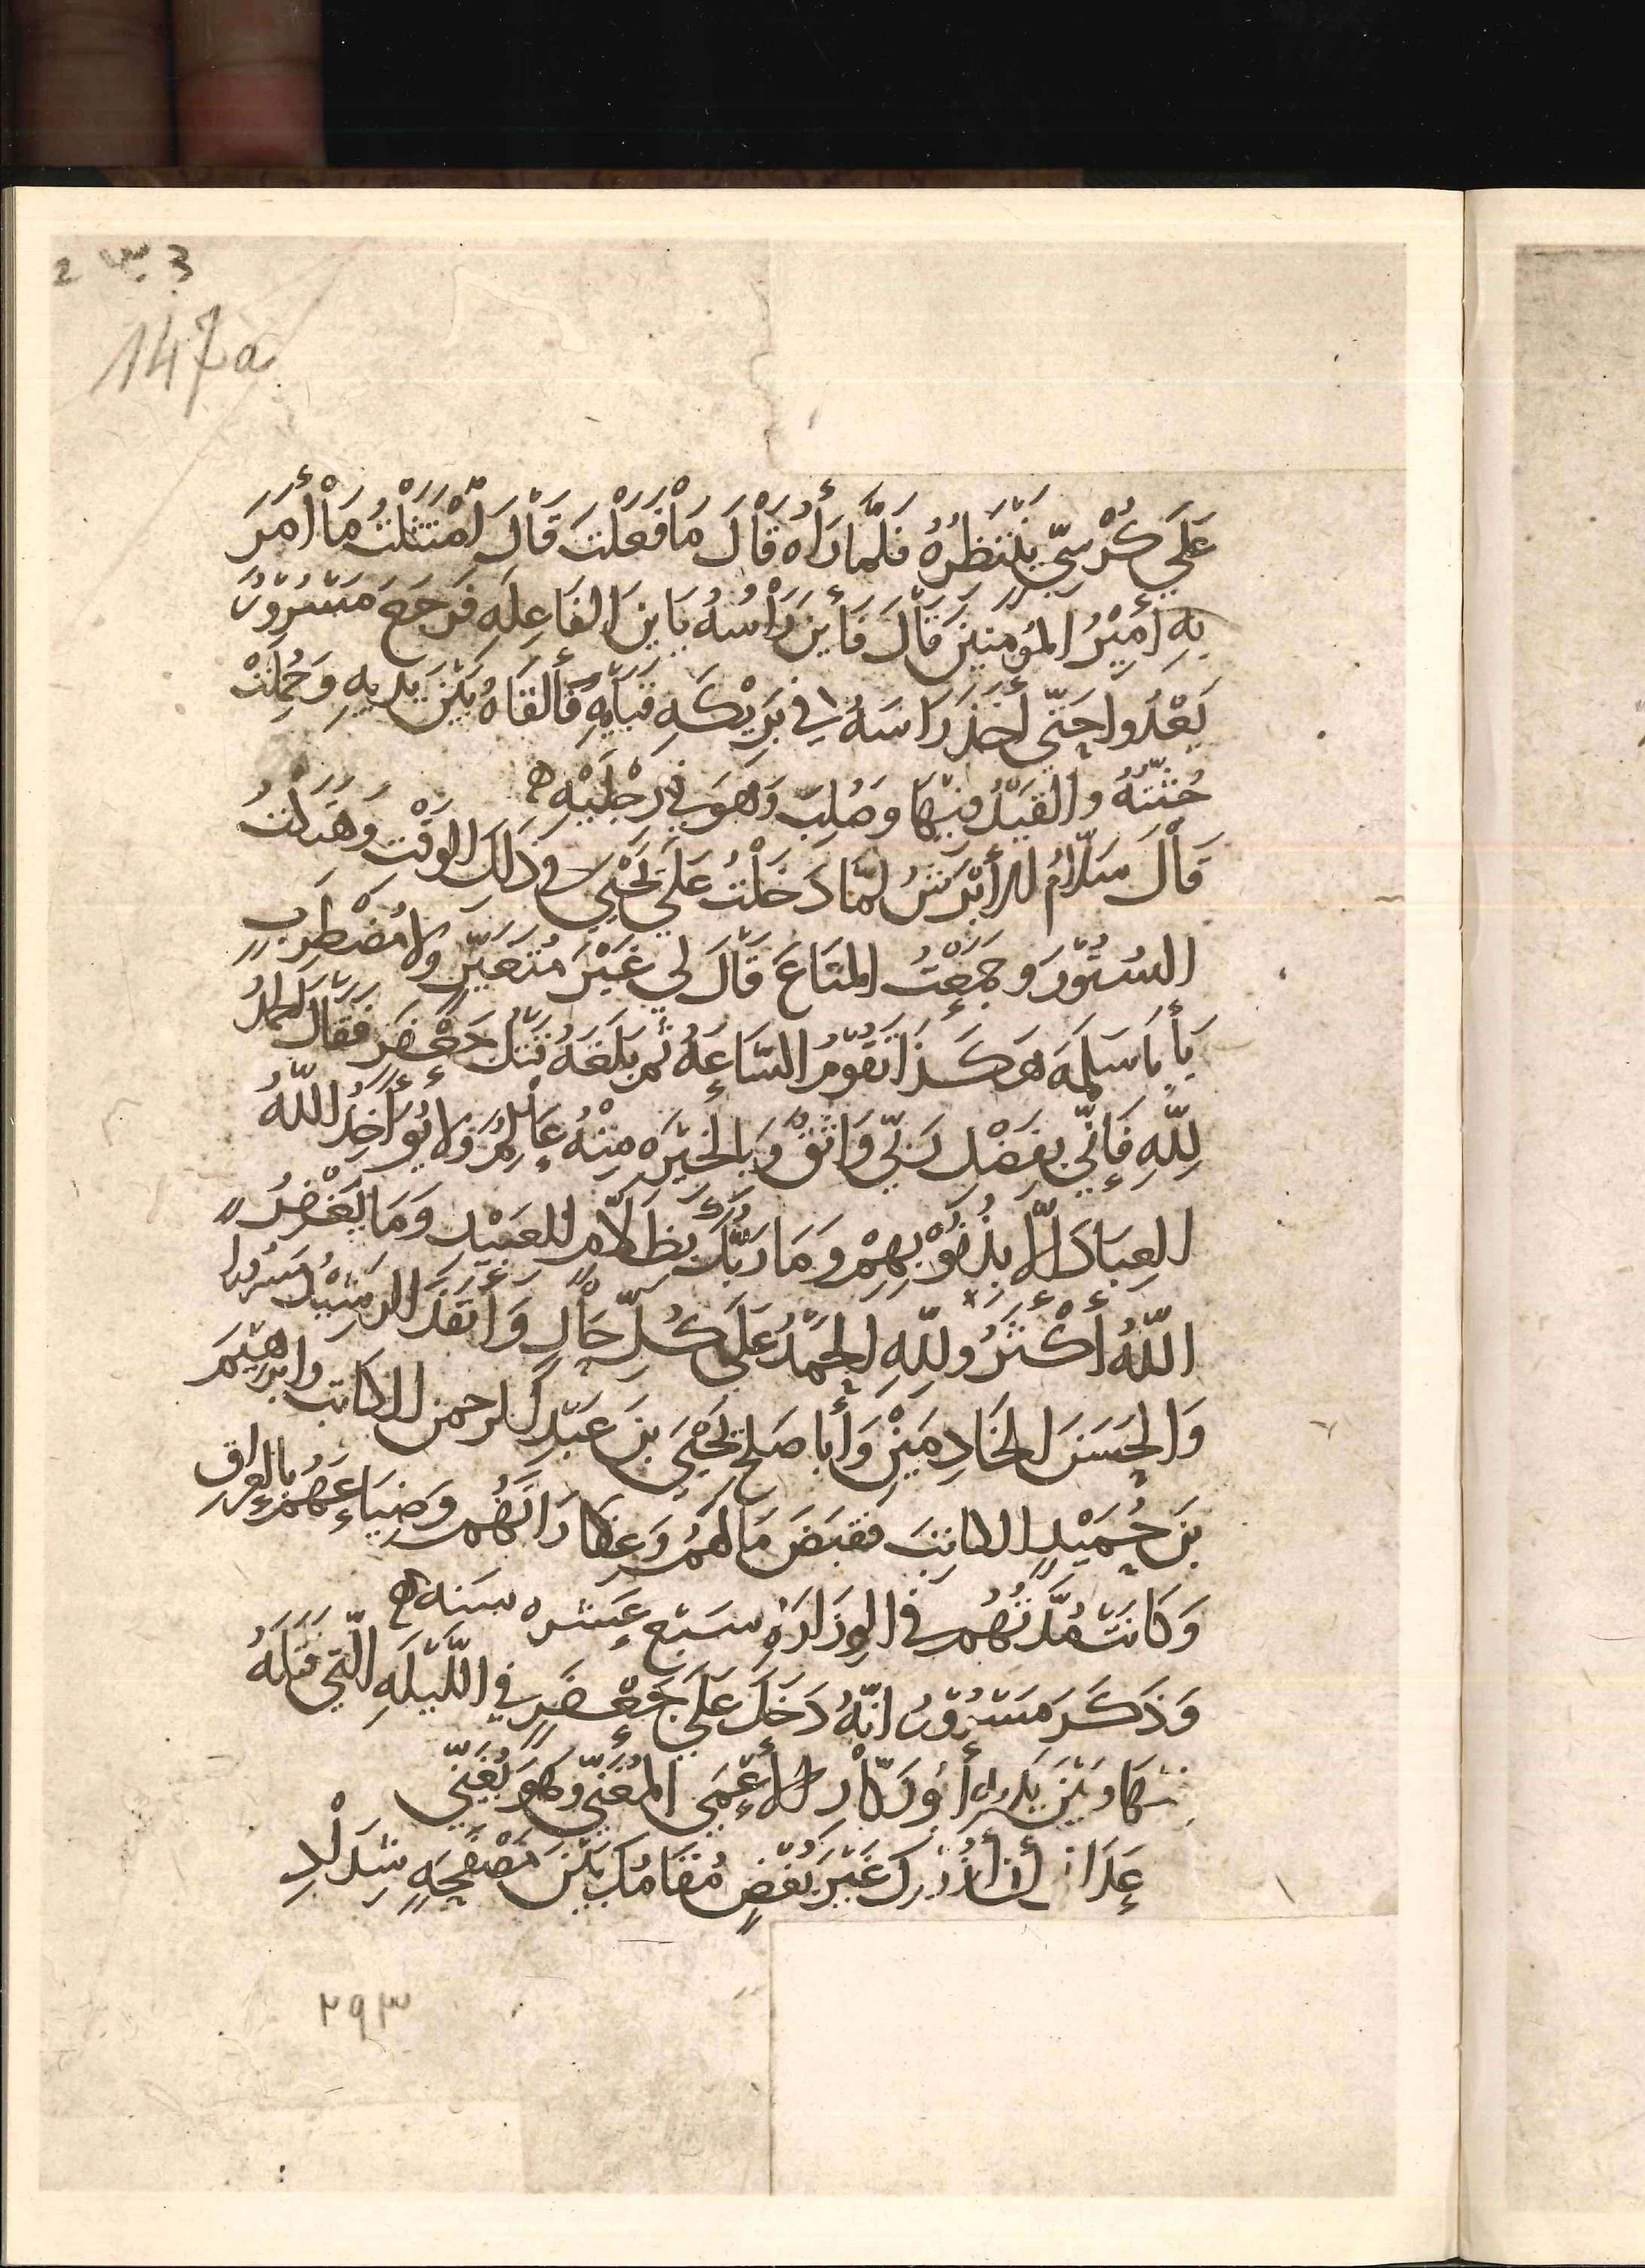 2 س 3
147a
عَلَي كُرْسِيّ يَنْتَظِرُهُ فَلَمَّا رَأَاهُ قَالَ مَا فَعَلْتَ قَالَ اَمْتَثَلْتُ مَا أَمَرَ
بِهِ أَمِيْرُ المُؤمِنِيْنَ قَالَ فَأَيْنَ رَأْسُهُ يَا بْنَ الفَاعِلَهِ فَرَجَعَ مَسْرُوْرٌ
يَعْدُوا حَتّي أَخَذَ رَاسَهُ فِي بَرِيْكَهِ قَبَايِهِ فَأَلقَاهُ بَيْنَ يَدَيهِ وَحُمِلَتْ
جُثَّتُهُ وَالقَيْدُ فِيْهَا وَصُلِبَ وَهوَ فِي رَجْلَيْهِ ه
قَالَ سَلّامُ الأَبْرَشُ لَمَّا دَخَلْتُ عَلَي يَحْيَي في ذَلِكَ الوَقْتِ وَهَتَكْتُ
السُتُوْرَ وَجَمَعْتُ المَتَاعَ قَالَ لِي غَيْرَ مُتَغَيّرٍ وَلا مُضْطَرِبٍ
يَا بَا سَلَمَه هَكَذَا تَقُوْمُ السَّاعَهُ ثُمّ بَلَغَهُ قَتْلُ جَعْفَرٍ فَقَالَ الحَمْدُ
لِلّهِ فَإنّي بِفَضْلِ رَبّي وَاثِقٌ وَبِالخَيْرَهِ مِنْهُ عَالِمٌ وَلا يُؤَاخِذُ اللّهُ
العِبَادَ الّا بِذُنُوْبِهِمْ وَمَا رَبُّكَ بِظَلّامٍ لِلعَبِيْدِ وَمَا يَغْفِرُ
اللّهُ أَكْثَرُ وَلِلّهِ الحَمْدُ عَلَي كُلّ حَالٍ وَأَنْفَذَ الرَشِيْدُ مَسْرُورا
وَالحَسَنَ الخَادِمَيْنِ وَأَبا صَلح يَحْيَي بنَ عَبْدِ الرحمن الكاتب وابرهيم
بنَ حُمَيْدٍ الكاتِبَ فَقَبَضَ مَالَهُمْ وَعِقَارَاتَهُم وَضِيَاعَهُمْ بالعراق
وَكَانَتْ مُدَّتُهُم فِي الوِزَارَهِ سَبْعَ عَشره سَنه ه
وَذَكَرَ مَسْرُوْرٌ انّهُ دَخَلَ عَلَي جَعْفَرٍ فِي اللَّيْلَهِ الّتِي قَتَلَهُ
فيهَا وَبَيْنَ يَدَيهِ أَبُو رَكّارٍ الأَعْمَي المُغَنّي وَهوَ يُغَنّي
بَيْنَ مُصْفَحَهٍ
٢٩٣